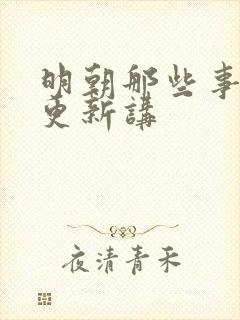 明朝那些事
更新講
夜清青禾